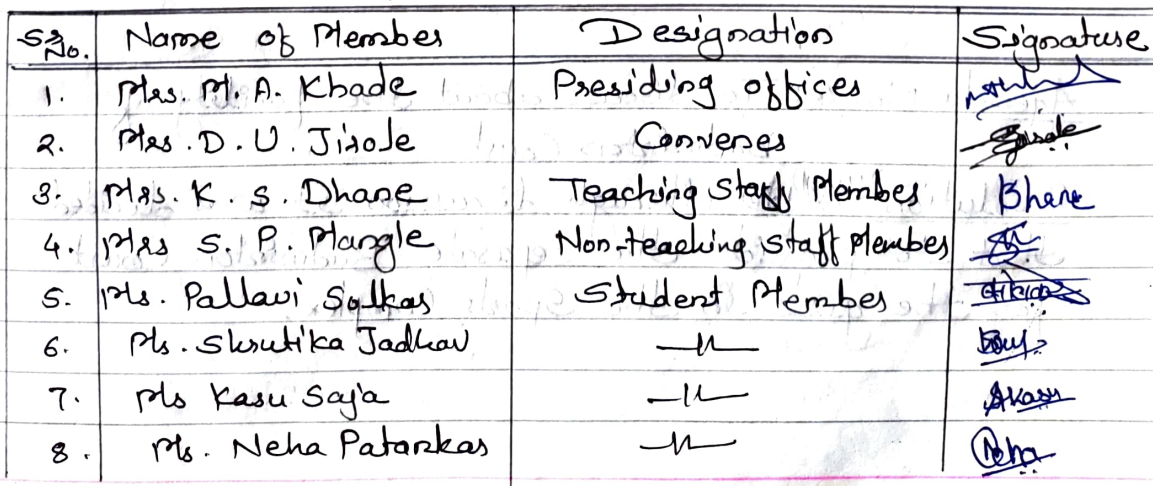 Sr. No. Name of Member Designation Signature
1. Mrs. M. A. Khade Presiding officer
2. Mrs. D. U. Jirole Convener
3. Mrs. K. S. Dhane Teaching Staff Member Bhane
4. Mrs S. P. Mangle Non-teaching Staff Member
5. Ms. Pallavi Salkar Student Member
6. Ms. Shrutika Jadhav —11—
7. Ms Kasu Saja —11— Akasu
8. Ms. Neha Patankar —11— Neha